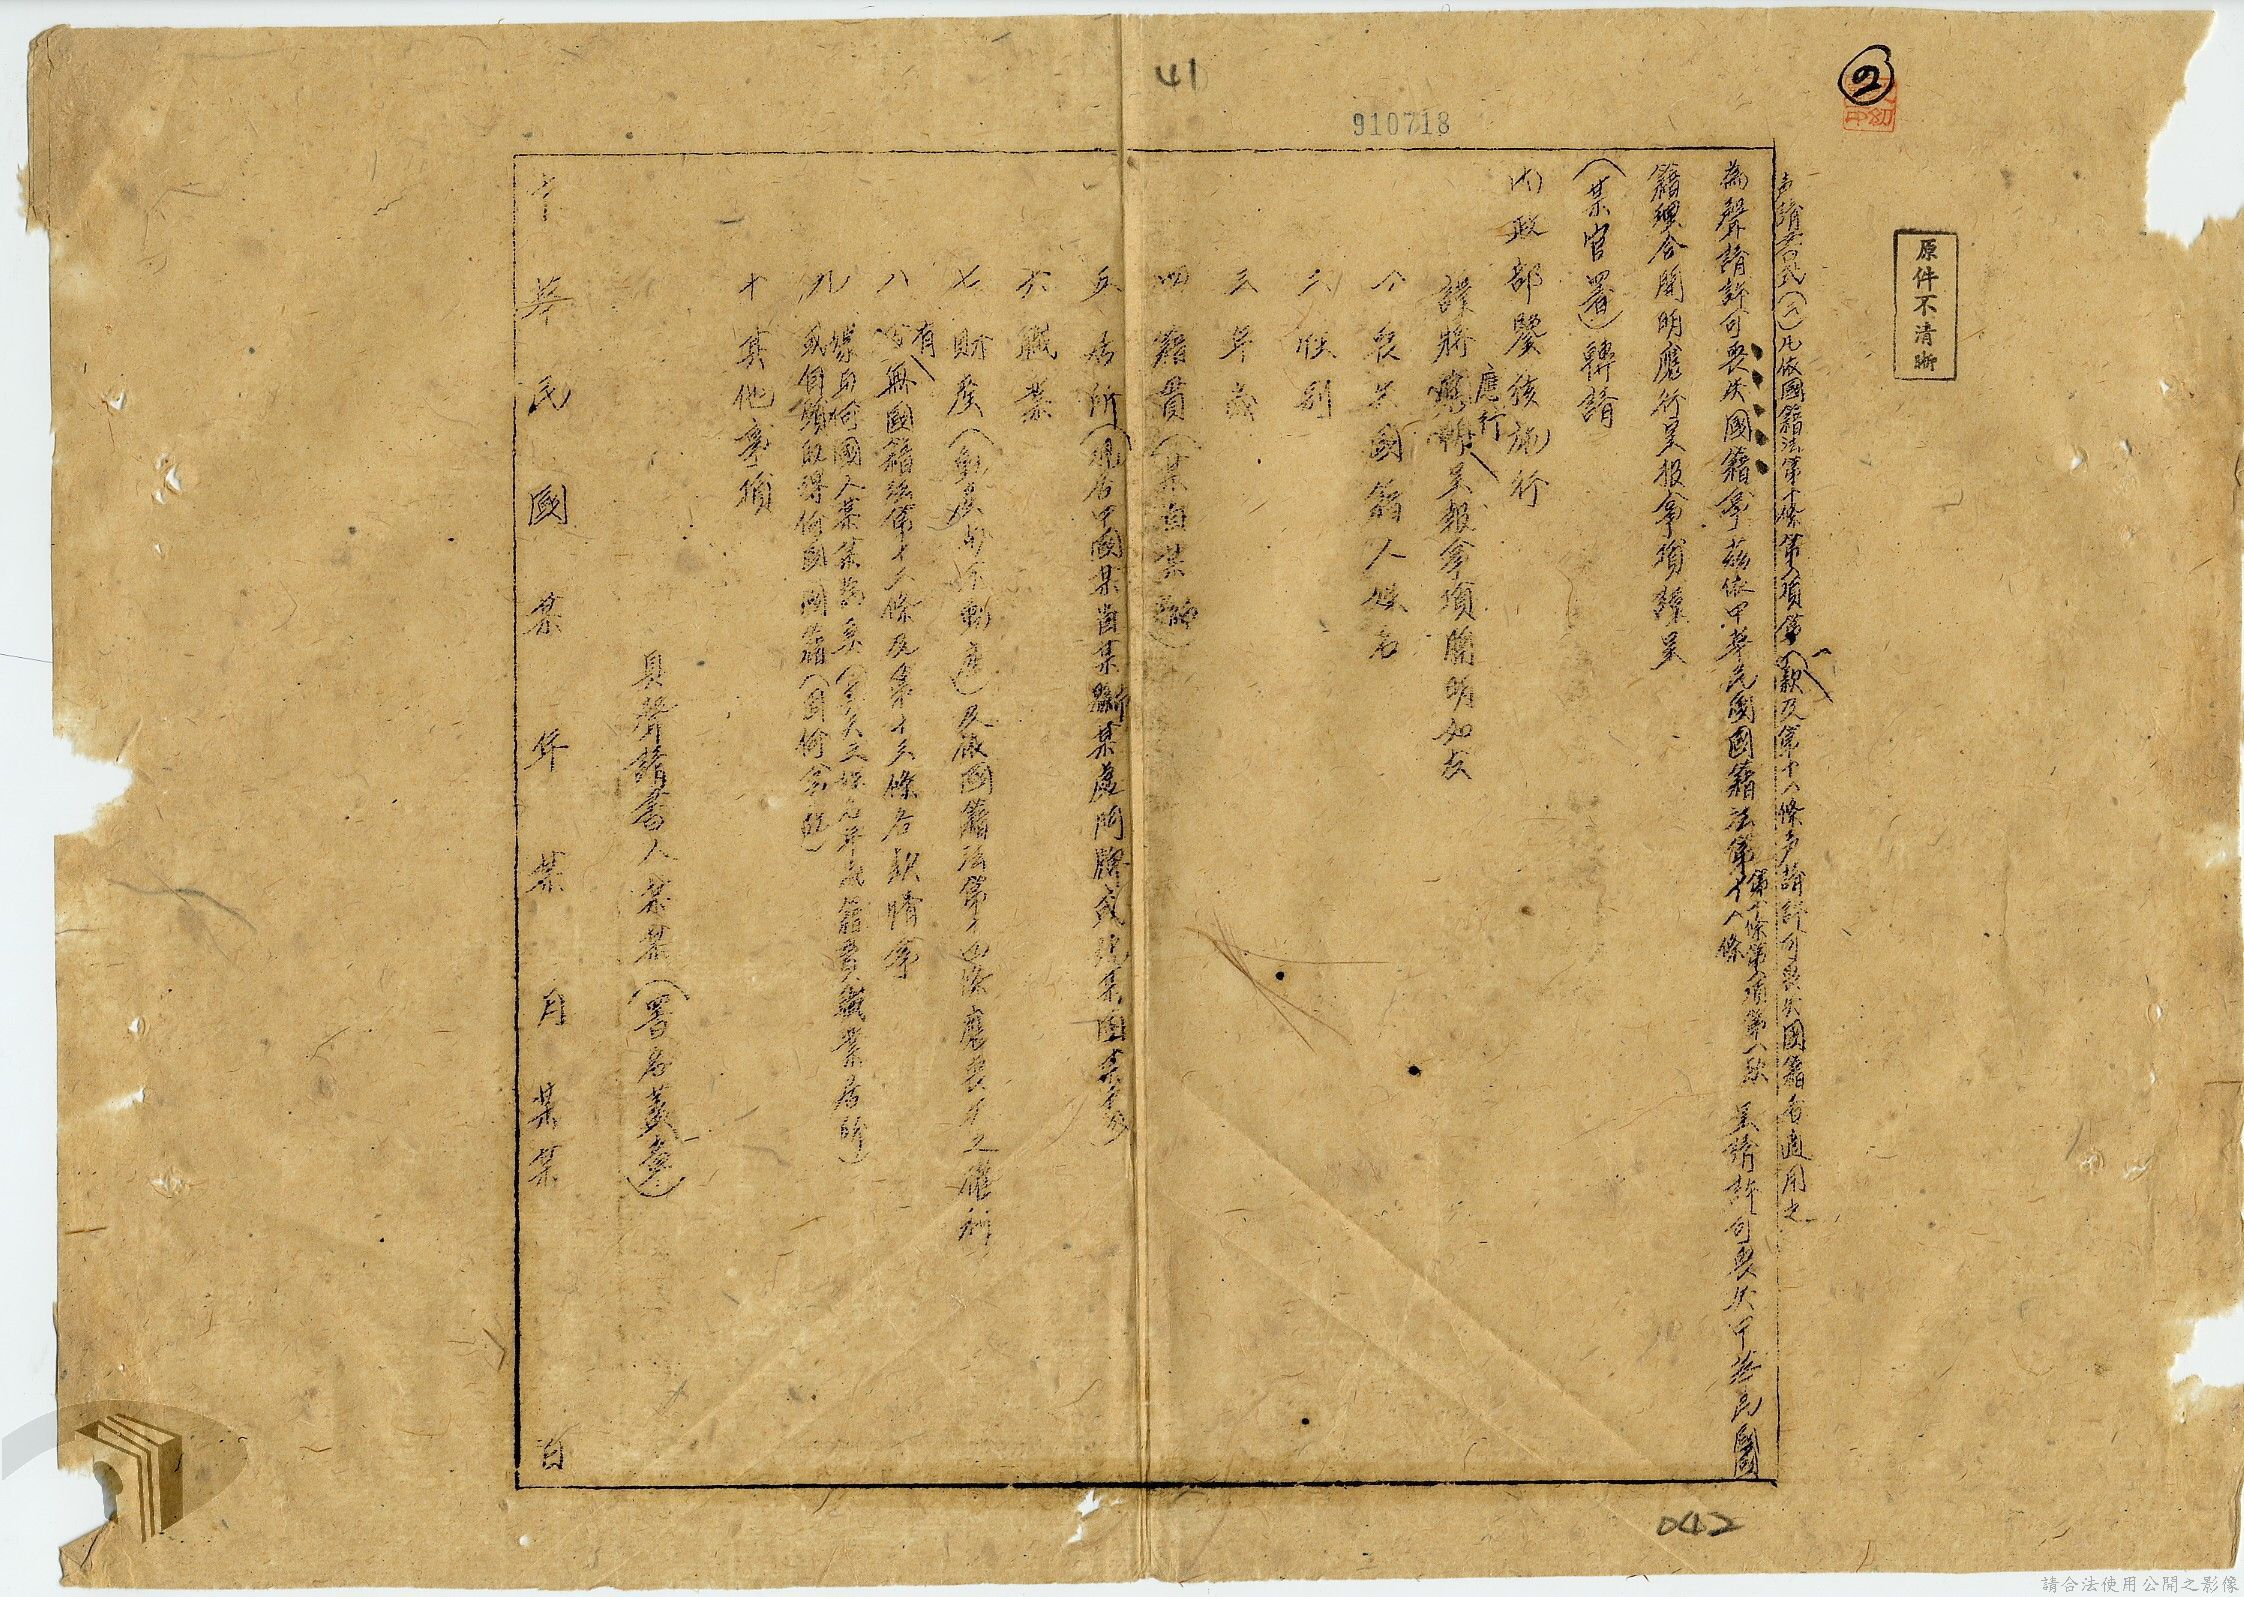 41
②
910718
原件不清晰
声請書式(二)凡依國籍法第十條第一項第一款及第十一條声請許可喪失國籍者適用之
為聲請許可喪失國籍事茲依中華民國國籍法第十一條 第十條第一項第一款 呈請許可喪失中華民國
籍理合開明應行呈报事項謹呈
(某官署)轉請
內政部鑒核施行
謹將應行呈報事項開明如左
一 喪失國籍人姓名
二 性别
三 年歲
四 籍貫(某省某縣)
五 居所(現居中國某省某縣市某處門牌或現某國某處)
六 職業
七 財產(動產与不動產)及依國籍法第十四條應喪失之權利
八 有無國籍法第十二條及第十三條各款情事
九 嫁与何國人某某為妻(其夫之姓名年歲籍貫職業居所)
或自願取得何國國籍(因何사由)
十 其他事項
具聲請書人某某(署名蓋章)
中華民國某年某月某某日
042
請合法使用公開之影像